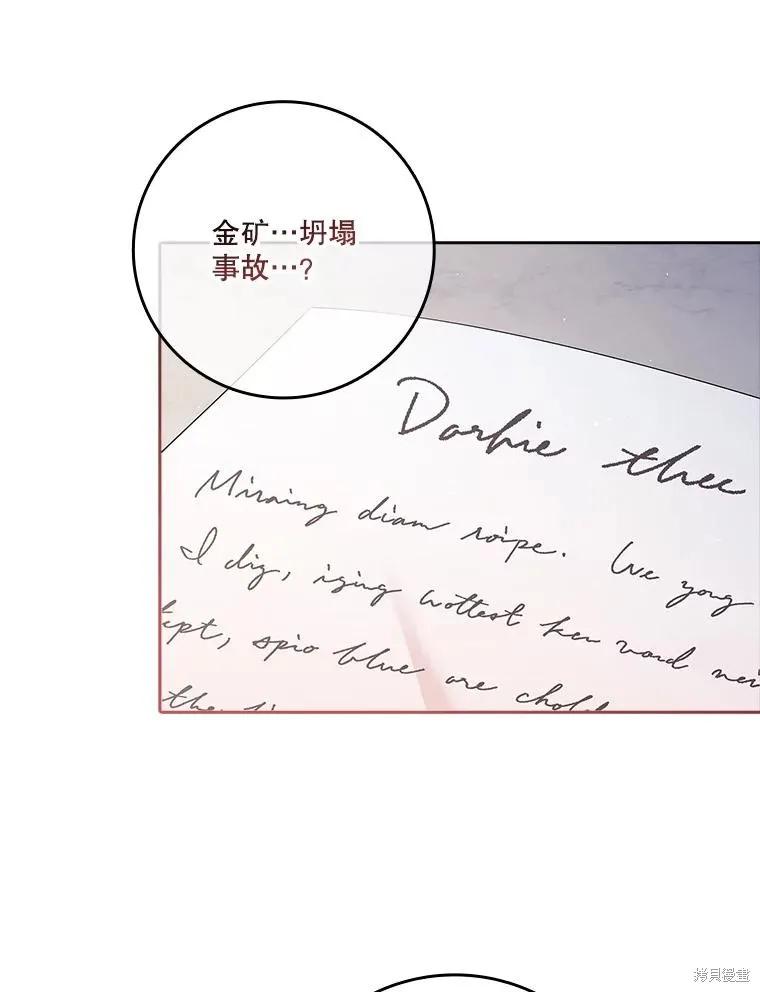 金矿…坍塌
事故…?
Darhie thee
Miraing diam roipe. We yong
I dig, iging wottest ken vord nei
tept, spio blue are chold
the
拷貝漫畫